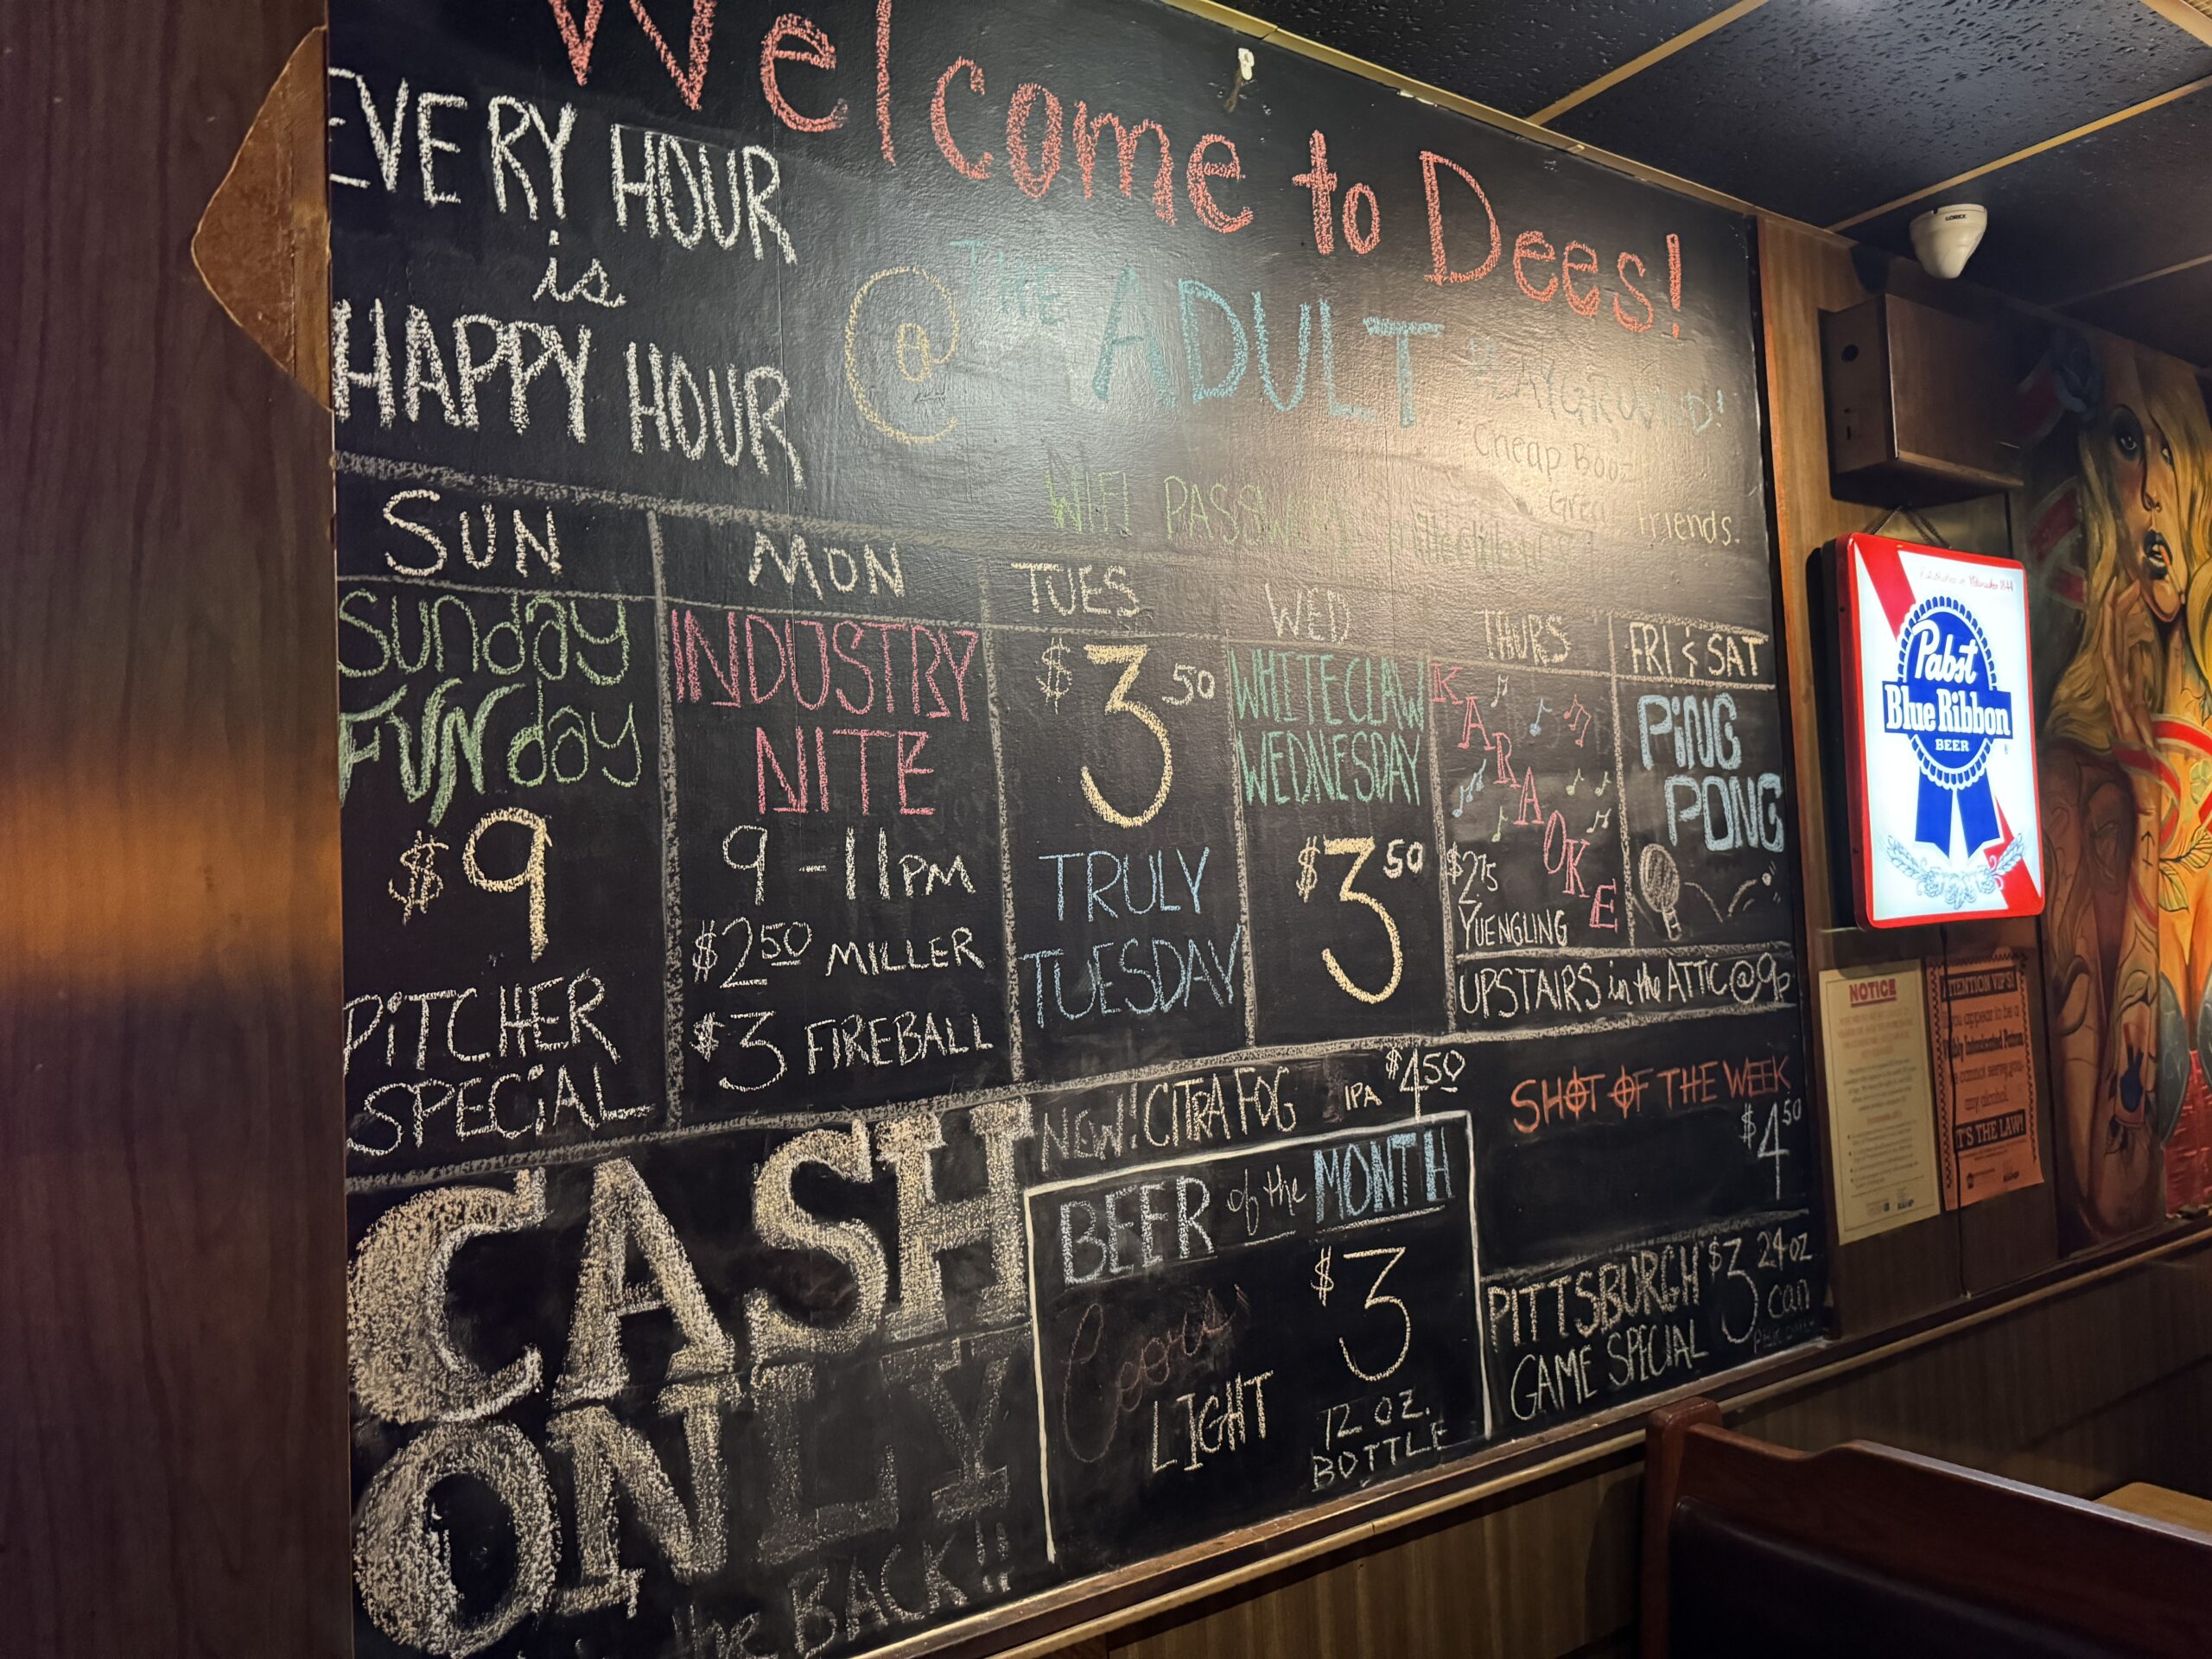 Welcome to Dees!
EVERY HOUR
is
HAPPY HOUR
@ THE ADULT PLAYGROUND!
Cheap
Great friends.
WIFI PASSWORD
SUN
Sunday
FUNday
$9
PITCHER
SPECiAL
MON
INDUSTRY
NITE
9-11PM
$2.50 MILLER
$3 FIREBALL
TUES
$3.50
TRULY
TUESDAY
WED
WHITECLAW
WEDNESDAY
$3.50
THURS
KARAOKE
$2.75
YUENGLING
FRI & SAT
PiNG
PONG
UPSTAIRS in the ATTIC @ 9p
CASH
ONLY
the BACK!!
NEW! CITRA FOG IPA $4.50
BEER of the MONTH
Coors
LIGHT
$3
12 OZ.
BOTTLE
SHOT OF THE WEEK
$4.50
PITTSBURGH
GAME SPECIAL
$3 24oz
can
LOREX
Established in Milwaukee 1844
Pabst
Blue Ribbon
BEER
NOTICE
ATTENTION VIP'S!
you appear to be a
Visibly Intoxicated Patron
we cannot serve you
any alcohol.
IT'S THE LAW!